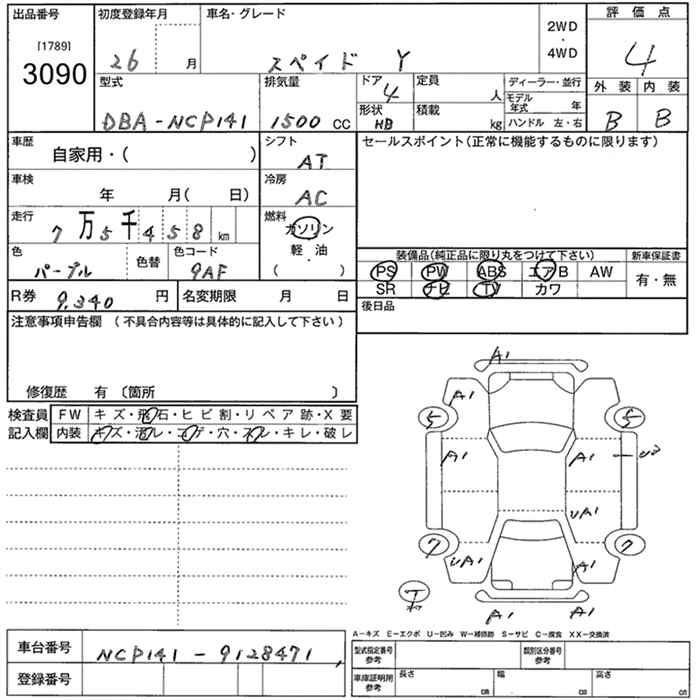 出品番号 初度登録年月 車名・グレード 2WD ・ 4WD 評価点
[1789]
3090 26 月 スペイド Y 4
型式 排気量 ドア 定員 ディーラー・並行 外装 内装
4 人 モデル年式 年
DBA-NCP141 1500 CC 形状 積載 B B
HB kg ハンドル 左・右
車歴 シフト セールスポイント(正常に機能するものに限ります)
自家用・( ) AT
車検 冷房
年 月( 日) AC
走行 燃料
7万5千458 km ガソリン
色 色替 色コード 軽・油 装備品(純正品に限り丸をつけて下さい) 新車保証書
パープル 9AF ( ・ ) PS PW ABS エアB AW 有・無
R券 9,340 円 名変期限 月 日 SR ナビ TV カワ
注意事項申告欄 (不具合内容等は具体的に記入して下さい) 後日品
修復歴 有 〔箇所 〕
検査員 FW キズ・飛石・ヒビ割・リペア跡・X要
記入欄 内装 キズ・汚レ・コゲ・穴・スレ・キレ・破レ
A1
A1
5 5
A1 A1 U2
UA1
7 UA1 A1 7
A1 A1
A-キズ E-エクボ U-凹み W-補修跡 S-サビ C-腐食 XX-交換済
車台番号 NCP141-9128471
型式指定番号 参考 類別区分番号
登録番号 車庫証明用 参考 長さ cm 幅 cm 高さ cm